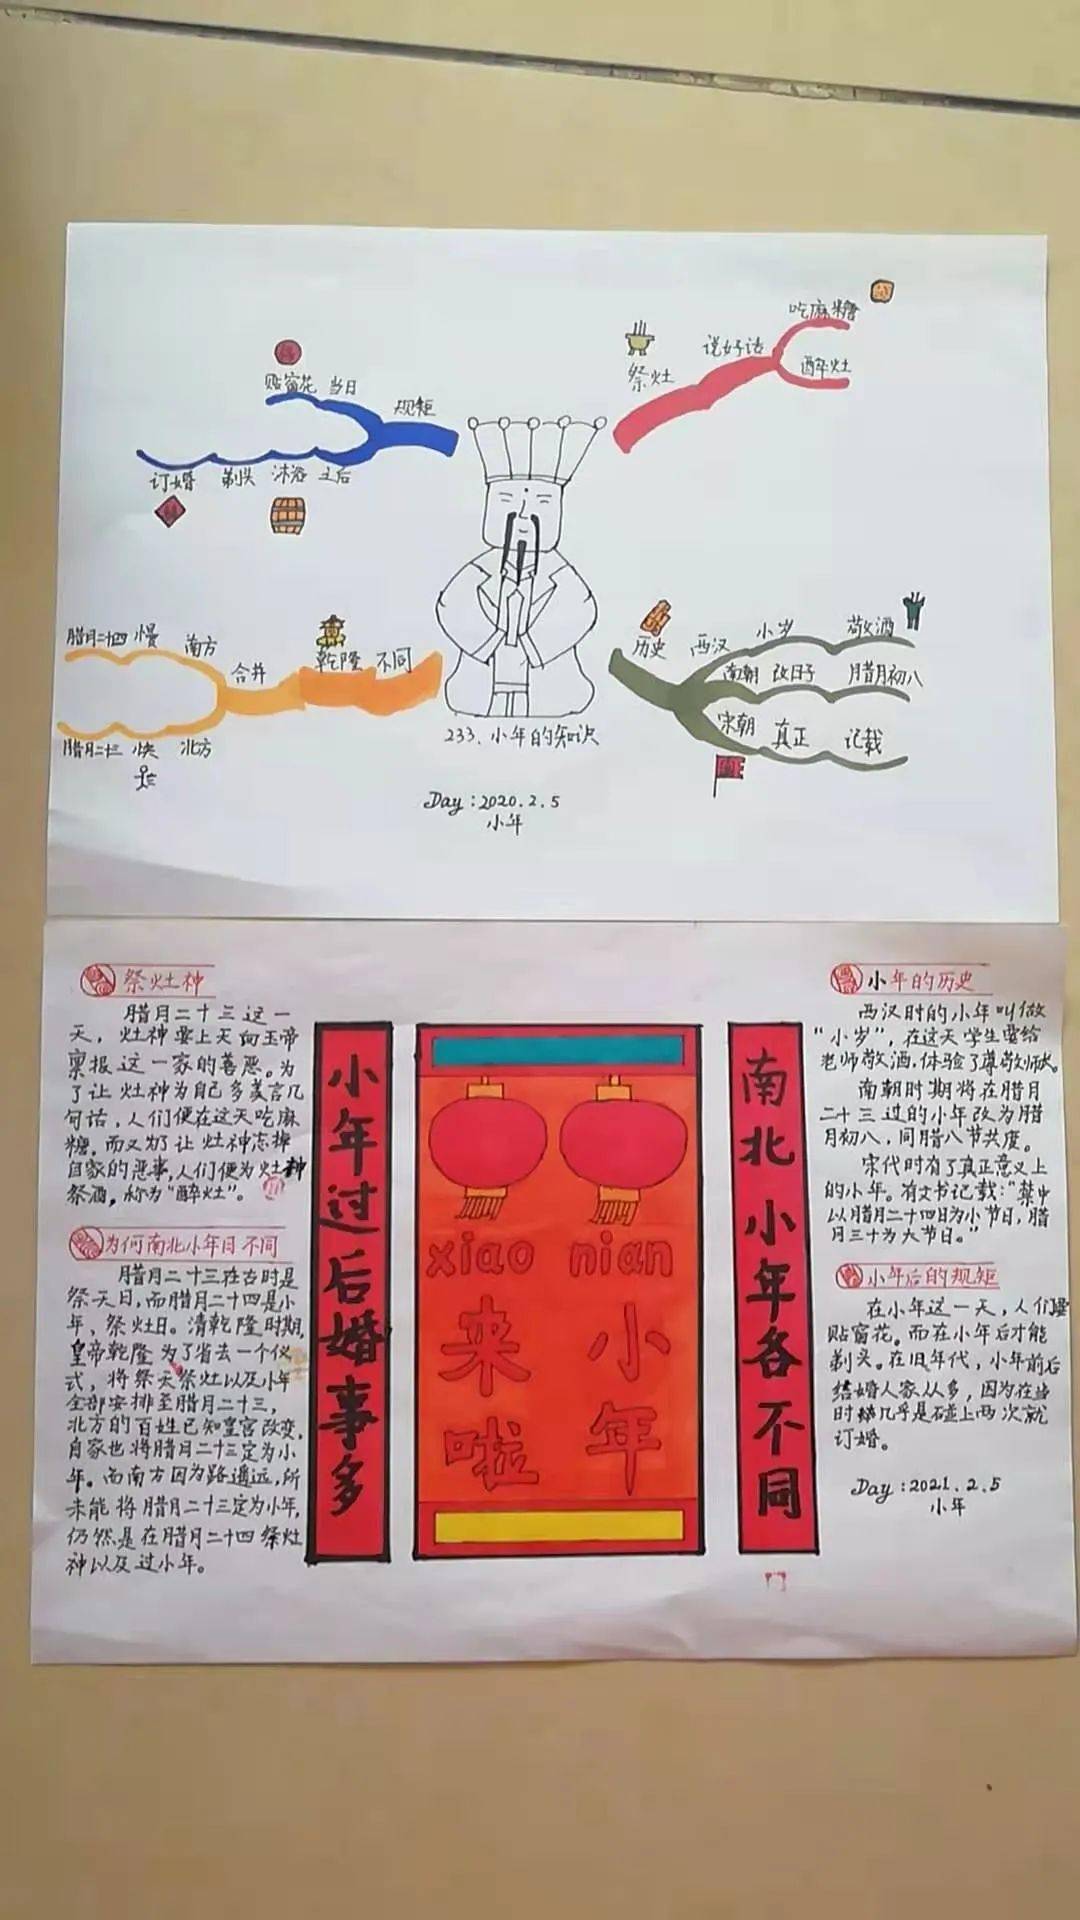 吃麻糖
说好话
醉灶
祭灶
贴窗花 当日
规矩
订婚 剃头 沐浴 之后
腊月二十四 慢 南方
合并
乾隆 不同
腊月二十三 快 北方
历史 西汉 小岁 敬酒
南朝 改日子 腊月初八
宋朝 真正 记载
233、小年的知识
Day:2020.2.5
小年
祭灶神
腊月二十三这一
天，灶神要上天向玉帝
禀报这一家的善恶。为
了让灶神为自己多美言几
句话，人们便在这天吃麻
糖。而又为了让灶神忘掉
自家的恶事，人们便为灶神
祭酒，称为“醉灶”。
为何南北小年日不同
腊月二十三在古时是
祭天日，而腊月二十四是小
年、祭灶日。清乾隆时期，
皇帝乾隆为了省去一个仪
式，将祭天祭灶以及小年
全部安排至腊月二十三，
北方的百姓已知皇宫改变，
自家也将腊月二十三定为小
年。而南方因为路遥远，所
未能将腊月二十三定为小年，
仍然是在腊月二十四祭灶
神以及过小年。
小年过后婚事多
xiao nian
小年
来啦
南北小年各不同
小年的历史
西汉时的小年叫做
“小岁”，在这天学生要给
老师敬酒，体验了尊敬师长。
南朝时期将在腊月
二十三过的小年改为腊
月初八，同腊八节共度。
宋代时有了真正意义上
的小年。有文书记载：“禁中
以腊月二十四日为小节日，腊
月三十为大节日。”
小年后的规矩
在小年这一天，人们要
贴窗花。而在小年后才能
剃头。在旧年代，小年前后
结婚人家从多，因为在当
时几乎是碰上两次就
订婚。
Day:2021.2.5
小年